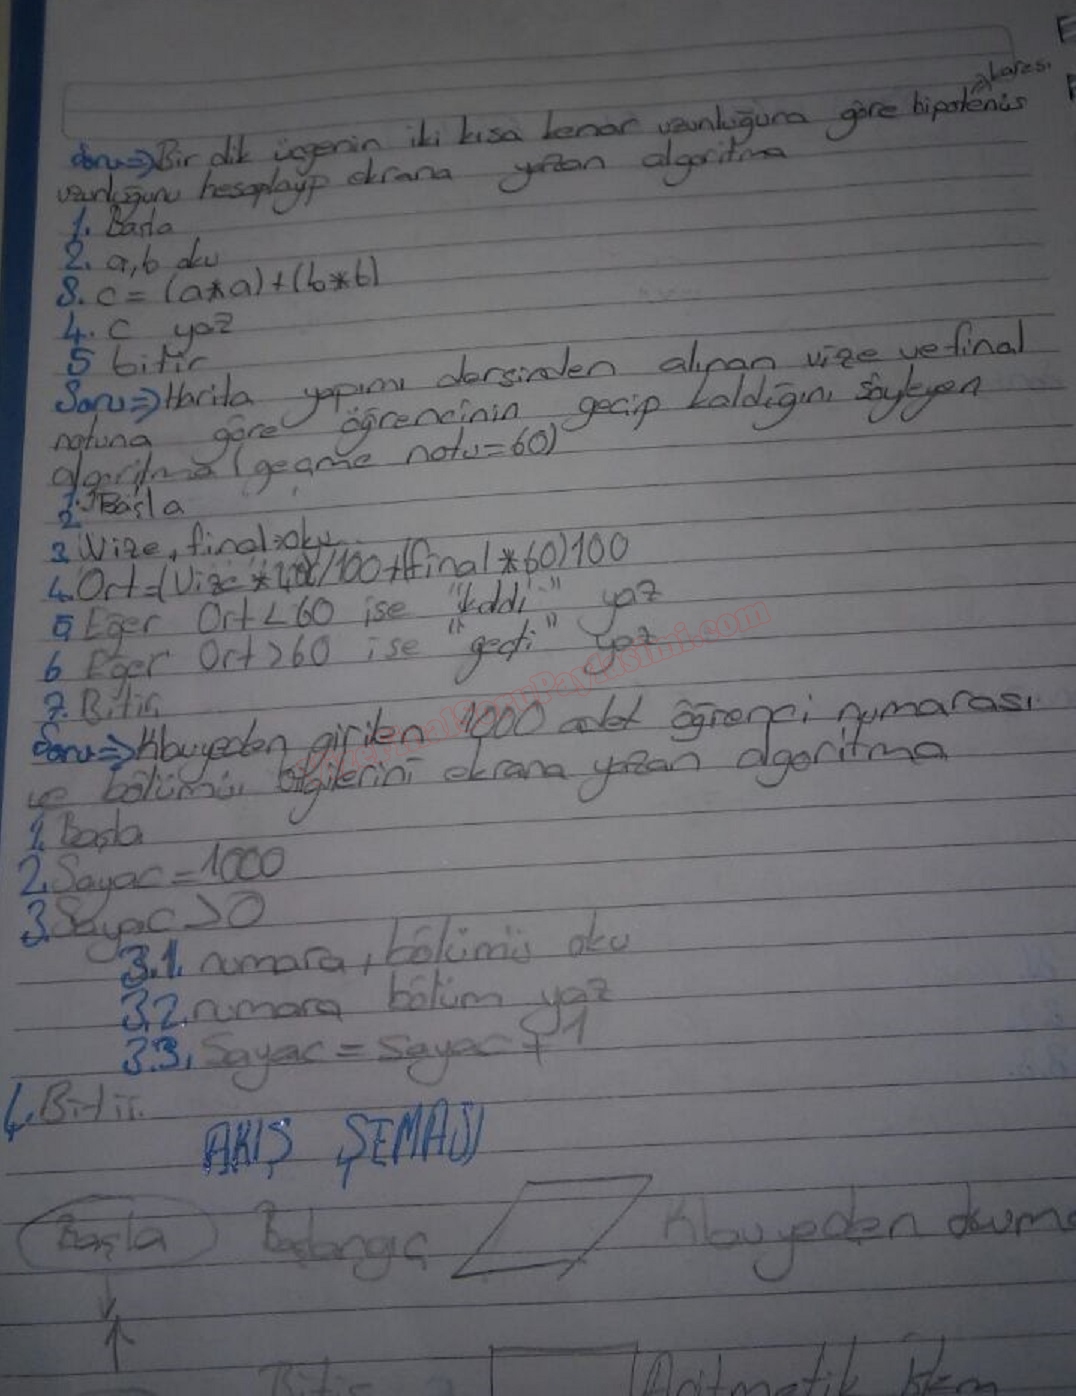 karesi
Soru⇒Bir dik üçgenin iki kısa kenar uzunluğuna göre hipotenüs
uzunluğunu hesaplayıp ekrana yazan algoritma
1. Başla
2. a,b oku
3. c = (a*a)+(b*b)
4. c yaz
5 bitir
Soru⇒Harita yapımı dersinden alınan vize ve final
notuna göre öğrencinin geçip kaldığını söyleyen
algoritma (geçme notu=60)
1. Başla
2
3 Vize, final oku
4. Ort=(Vize * 40)/100+(final*60)100
5 Eğer Ort<60 ise "kaldı" yaz
6 Eğer Ort>60 ise "geçti" yaz
7. Bitir
Soru⇒Klavyeden girilen 1000 adet öğrenci numarası
ve bölümü bilgilerini ekrana yazan algoritma
1. Başla
2. Sayac=1000
3. Sayac>0
3.1. numara, bölümü oku
3.2. numara bölüm yaz
3.3. Sayac = sayac + 1
4. Bitir.
AKIŞ ŞEMASI
Başla Başlangıç Klavyeden okuma
Bitiş Aritmetik işlem